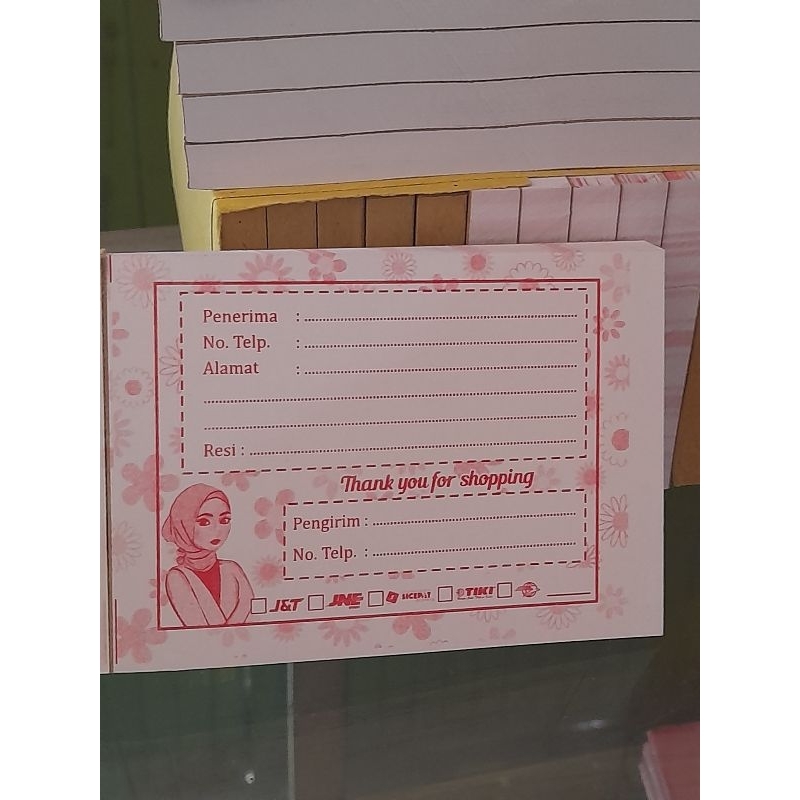 Penerima : ........................................
No. Telp. : ........................................
Alamat : ........................................
........................................
........................................
Resi : ........................................
Thank you for shopping
Pengirim : ........................................
No. Telp. : ........................................
J&T JNE SICEPAT TIKI